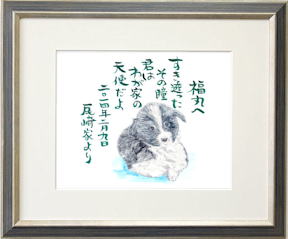 福丸へ
すき透った
その瞳
君は
わが家の
天使だよ
二〇二四年二月九日
尾崎家より